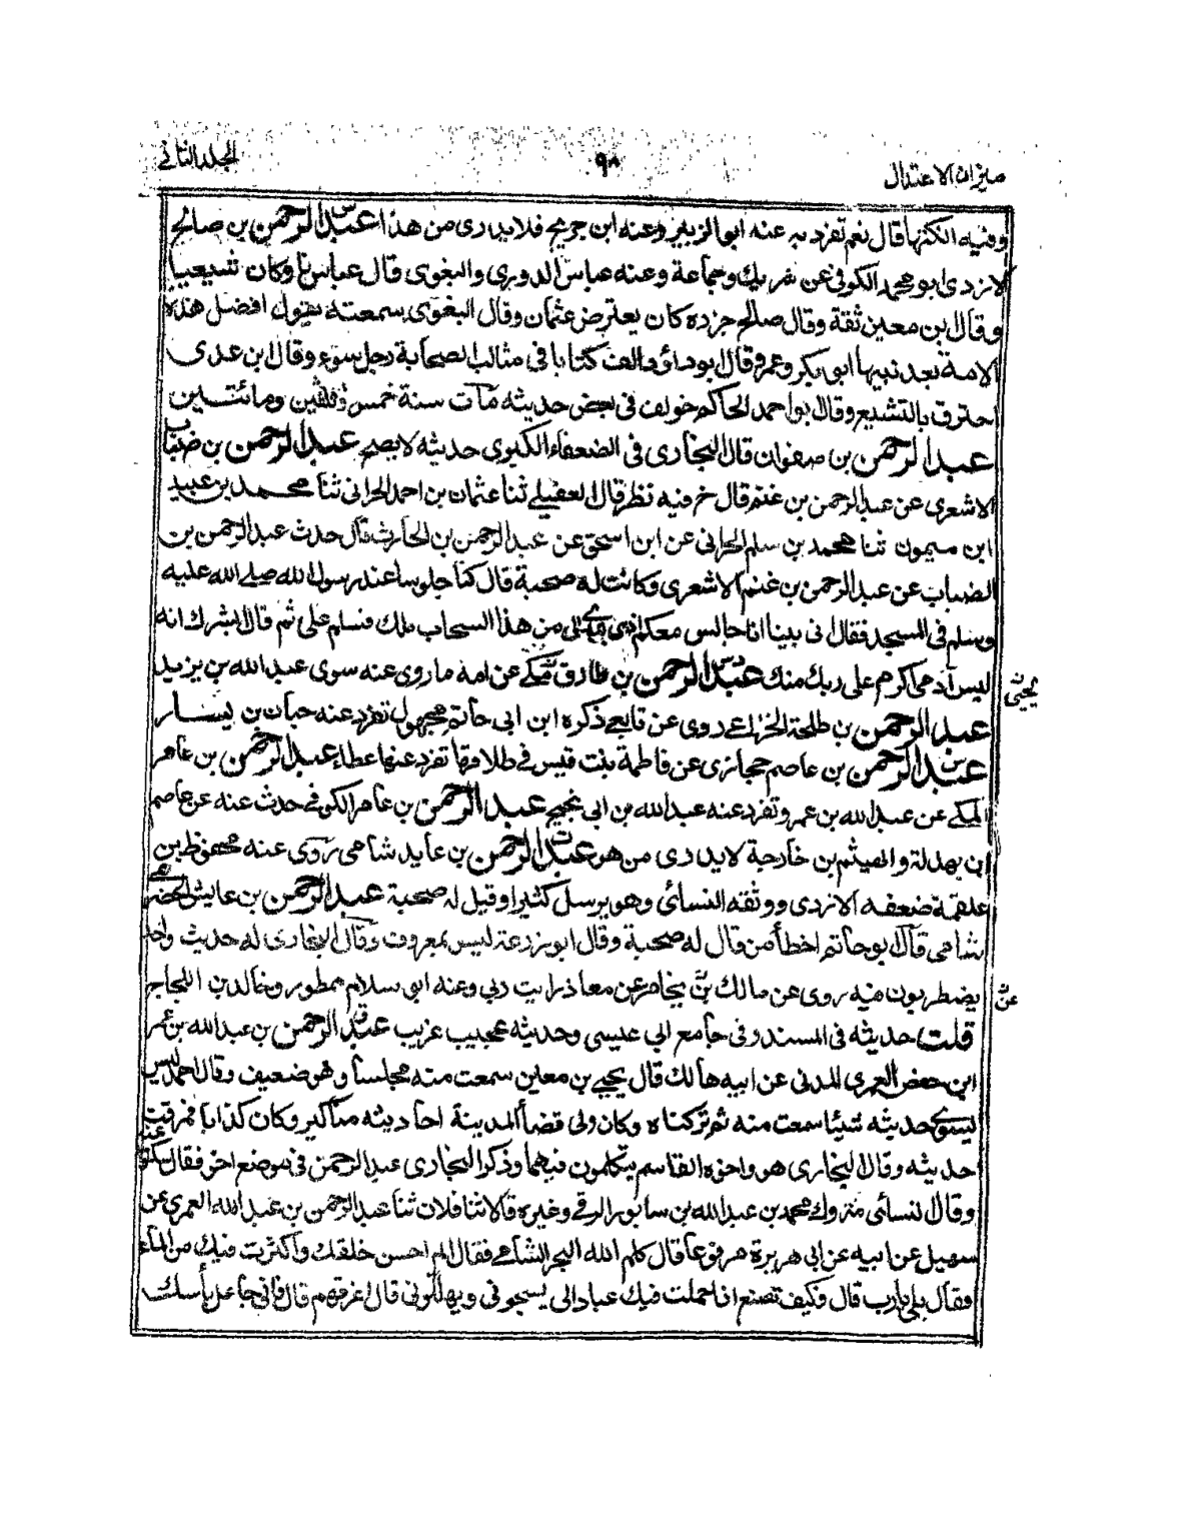 ميزان الاعتدال
٩٨
الجلد الثاني
وفيه الكنهاقال نعم تفرد به عنه ابوالزبير وعنه ابن جريج فلايدرى من هذا عبد الرحمن بن صالح
الازدى ابو محمد الكوفى عن شريك وجماعة وعنه عباس الدورى والبغوى قال عباس ثنا وكان شيعيا
وقال بن معين ثقة وقال صالح جزره كان يعترض عثمان وقال البغوى سمعته يقول افضل هذه
الامة بعد نبيها ابو بكر وعمر وقال بوداؤد الف كتابا فى مثالب الصحابة رجل سوء وقال ابن عدى
احترق بالتشيع وقال بواحمد الحاكم خولف فى بعض حديثه مات سنة خمس وثلثين ومائتين
عبد الرحمن بن صفوان قال البخارى فى الضعفاء الكبيرى حديثه لايصح عبد الرحمن بن ضباب
الاشعرى عن عبد الرحمن بن غنم قال خ فيه نظر قال العقيلے ثنا عثمان بن احمد الحرانى ثنا محمد بن عبيد
ابن ميمون ثنا محمد بن سلم الحرانى عن ابن اسحق عن عبد الرحمن بن الحارث قال حدث عبد الرحمن بن
الضباب عن عبد الرحمن بن غنم الاشعرى وكانت له صحبة قال كنا جلوسا عند رسول الله صلے الله عليه
وسلم فى المسجد فقال انى بينا انا جالس معكم لى من هذا السحاب ملك فسلم على ثم قال ابشرك انه
ليس آدمى اكرم على ربك منك عبد الرحمن بن طارق مكے عن امه ماروى عنه سوى عبد الله بن يزيد
يحيى
عبد الرحمن بن طلحة الخزاعے روى عن تابعے ذكره ابن ابى حاتم مجهول تفرد عنه حبان بن يسار
عبد الرحمن بن عاصم حجازى عن فاطمة بنت قيس فے طلاقها تفرد عنها عطاء عبد الرحمن بن عامر
المكے عن عبد الله بن عمر وتفرد عنه عبد الله بن ابى نجيح عبد الرحمن بن عامر الكوفے حدث عنه عن عاصم
ابن بهدلة والهيثم بن خارجة لايدرى من هو عبد الرحمن بن عايد شامى روى عنه محفوظ بن
علقمة ضعفه الازدى ووثقه النسائى وهو يرسل كثيرا وقيل له صحبة عبد الرحمن بن عايش الحضرمى
شامى قال ابوحاتم اخطأ من قال له صحبة وقال ابوزرعة ليس بمعروف وقال البخارى له حديث واحد
يضطربون فيه روى عن مالك بن يخامر عن معاذ رايت ربى وعنه ابى سلام ممطور وخالد بن اللجاج
عن
قلت حديثه فى المسند وفى جامع ابى عيسى وحديثه عجيب غريب عبد الرحمن بن عبد الله بن عمر
ابن حفص العمرى المدنى عن ابيه هالك قال يحيے بن معين سمعت منه مجلسا وهو ضعيف وقال احمد ليس
يسوى حديثه شيئا سمعت منه ثم تركناه وكان ولى قضأ المدينة احاديثه مناكير وكان كذابا فمزقت
حديثه وقال البخارى هو واخوه القاسم يتكلمون فيهما وذكر البخارى عبد الرحمن فى موضع اخر فقال سكتوا عنه
وقال لنسائى متروك محمد بن عبد الله بن سابور الرقے وغيره قالا ثنا فلان ثنا عبد الرحمن بن عبد الله العمرى عن
سهيل عن ابيه عن ابى هريرة مرفوعا قال كلم الله البحر الشامے فقال الم احسن خلقك واكثرت فيك من الماء
وقال بلى يارب قال وكيف تصنع اذا حملت فيك عبادالى يسبحونى ويهللونى قال اغرقهم قال فانى جاعل بأسك